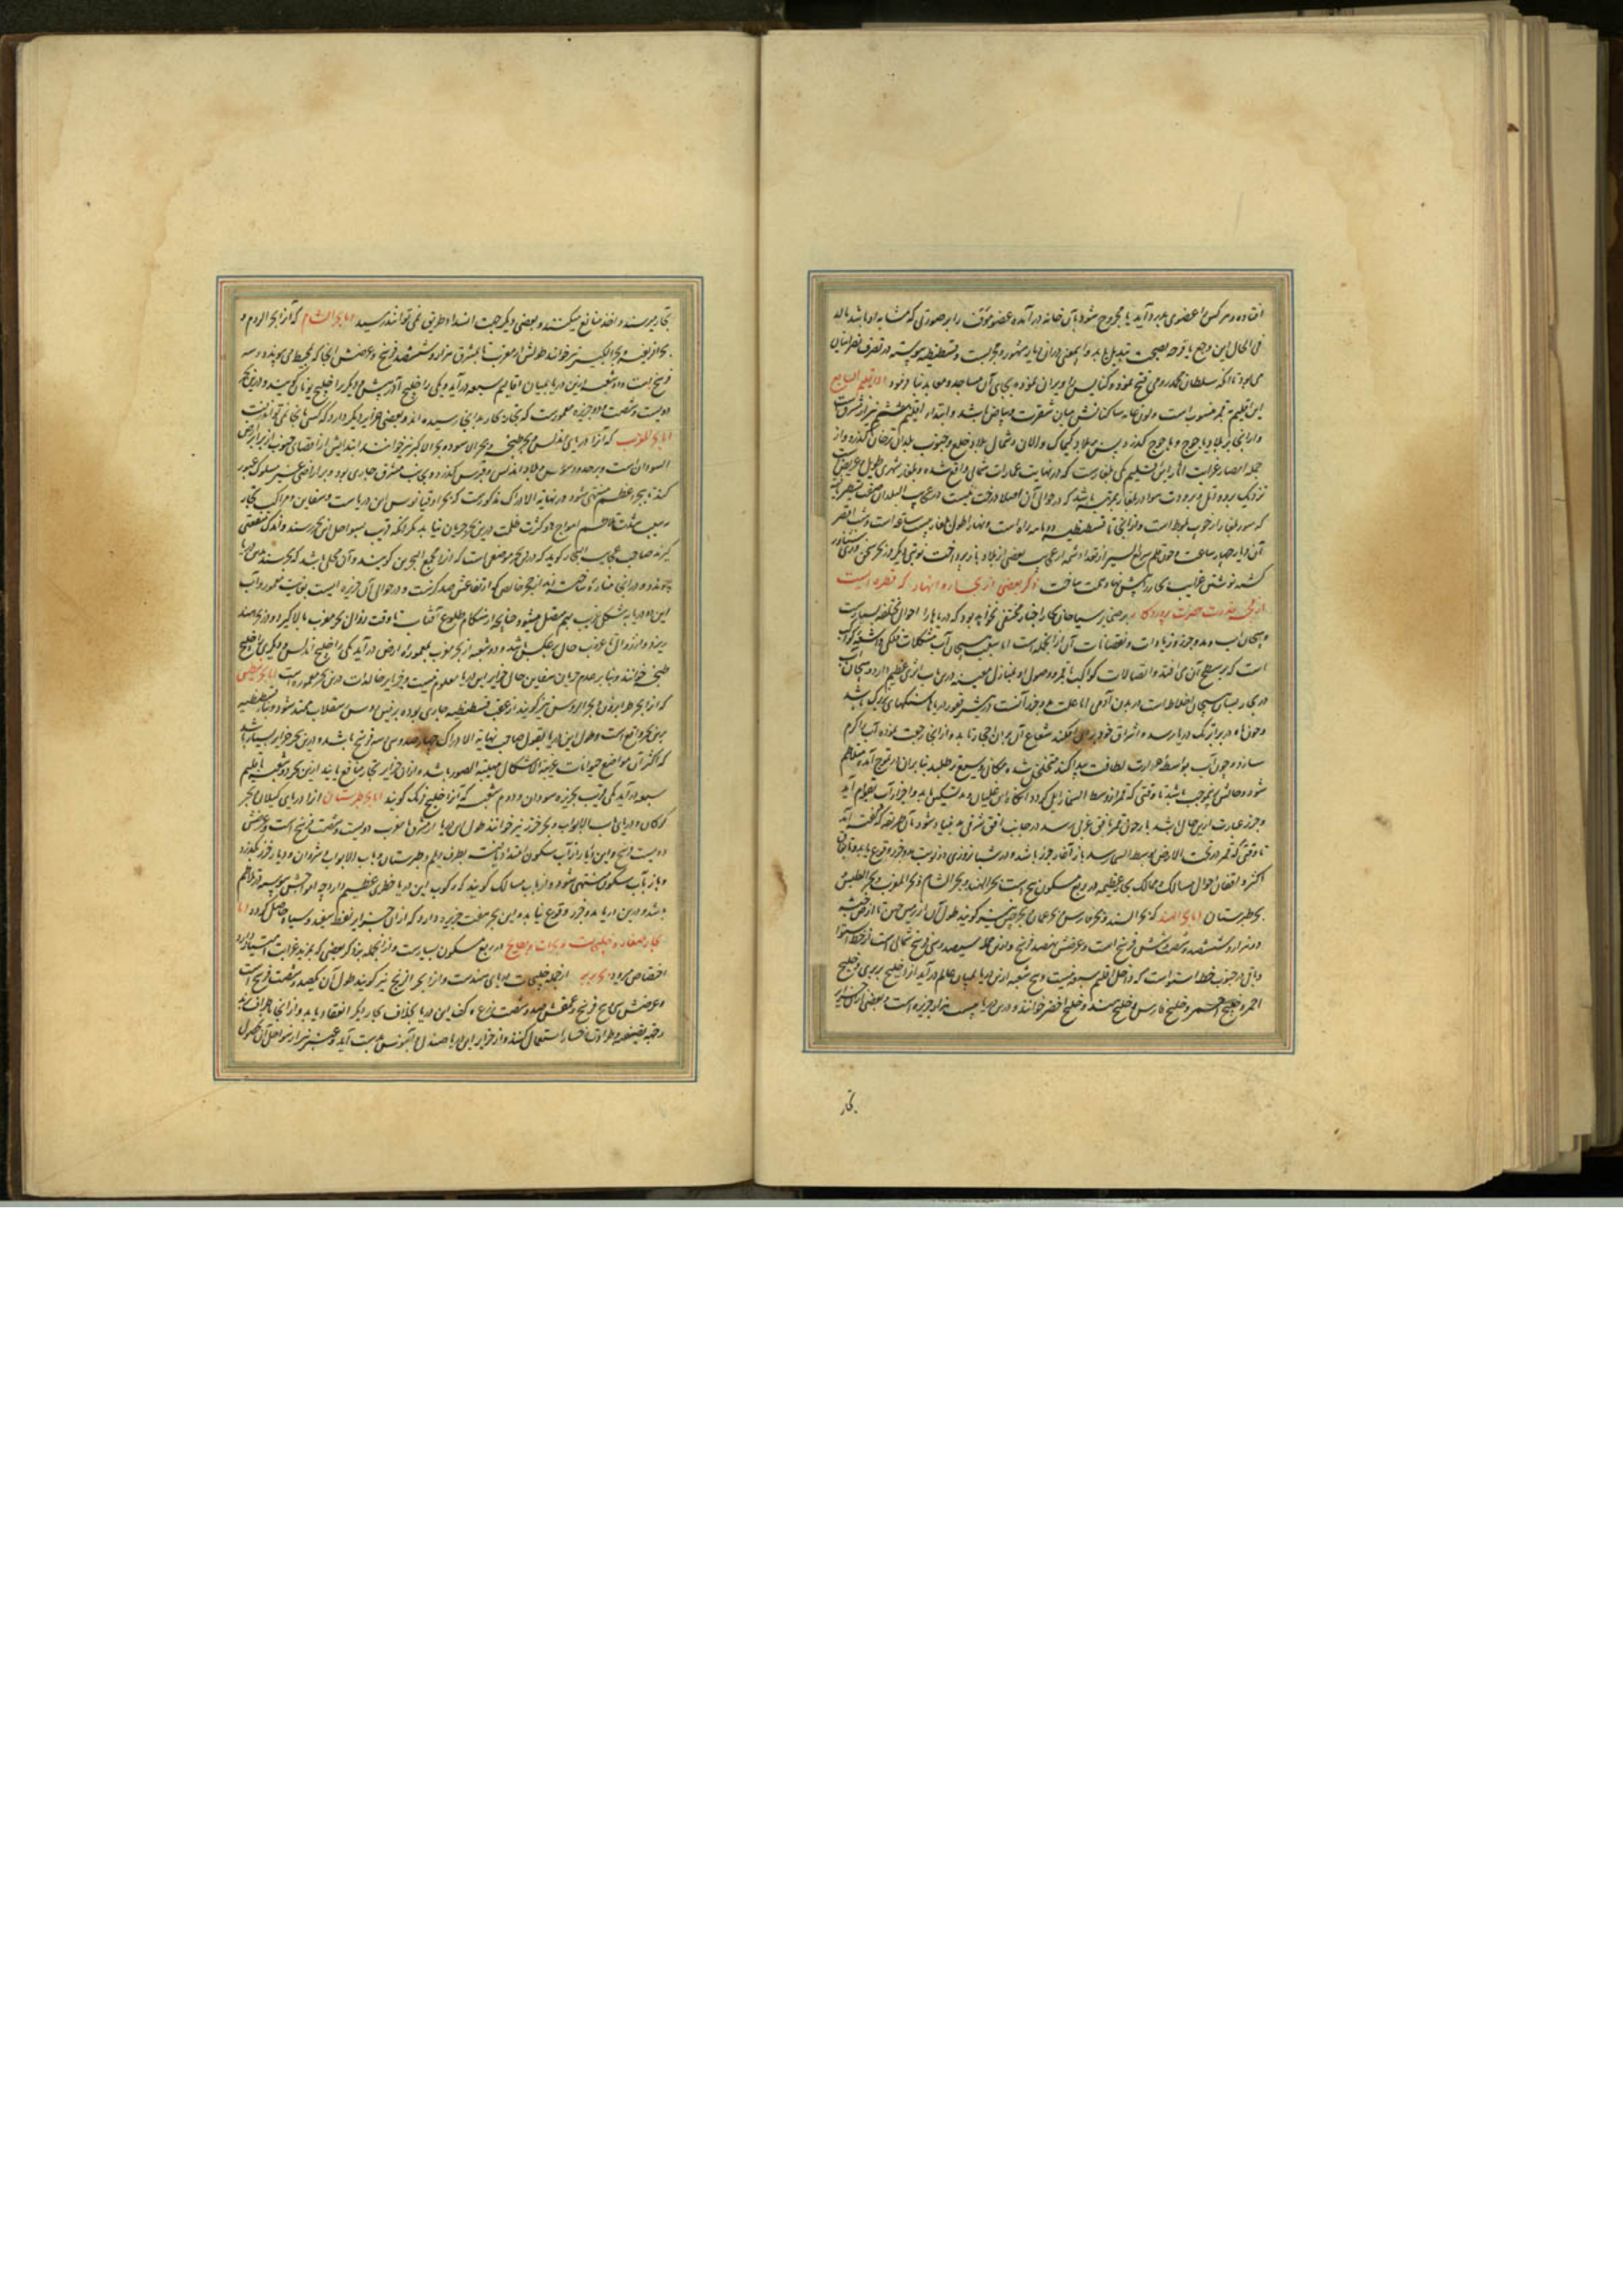 افتاده و هر کس را عضوی بدرد آید یا مجروح شود بآن خانه در آمده عضو مؤوف را بر صورتی که مشابه او باشد مالد
فی الحال این وجع یا قرحه بصحت تبدیل یابد و این معنی در آن دیار مشهور و مجربست و قسطنطنیه پیوسته در تصرف نصرانیان
می بود تا آنکه سلطان محمد رومی فتح نموده و کنایس را ویران نموده بجای آن مساجد و معابد بنا فرمود اما اقلیم السابع
این اقلیم بقمر منسوب است و لون عامه ساکنانش میان شقرت و بیاض باشد و ابتداء اقلیم هفتم نیز از مشرق است
و از انجا بر بلاد یاجوج و ماجوج گذرد پس بر بلاد کیماک و الان و شمال بلاد خلخ و جنوب بلدان گذرد و از
جمله امصار غرایب آثار این اقلیم یکی بلغارست که در نهایت عمارات شمالی واقع شده و بلغار شهری طویل و عریض
نزدیک بر و برودت هوا در بلغار بمرتبه باشد که در حوالی آن اصلا درخت نیست در عجایب البلدان
که سور بلغار از چوب بلوط است و از انجا تا قسطنطنیه دو ماهه راه است و نهار اطول بلغار بیست ساعت است و شب اقصر
آن دیار چهار ساعت و چون قلم سریع السیر از تعداد شمه از عجایب بعضی از بلاد باز پرداخت
کشته نوشتن غرایب بحار را پیش نهاد همت ساخت ذکر بعضی از بحار و انهار که قطره ایست
از قدرت حضرت پروردگار بر ضمیر سیاحان بحار اخبار مختفی نخواهد بود که دریاها را احوال مختلفه بسیارست
و هیجان آب و مد و جزر و زیادات و نقصانات آن از آنجمله است اما سبب هیجان آب مشکلات فلکی و اشعه کواکب
است که بر سطح آن می افتد و اتصالات کواکب با قمر و وصول او بمنازل معینه درین باب اثری عظیم دارد و هیجان آب
در بحار بسان هیجان اخلاط است در بدن آدمی اما علت مد و جزر آنست که در قعور دریاها سنگهای بزرگ باشد
و چون ماه در برابر یک دریا رسد و اشراق خود بر آن افکند شعاع آن بر آن حجار تابد و از انجا رجعت نموده آب را گرم
سازد و چون آب بواسطه حرارت لطافت پیدا کند متخلخل شده مکانی وسیع تر طلبد بنابران در تموج آمده متلاطم
شود و حالش بموجب باشد تا وقتی که قمر از وسط السما زایل گردد آنگاه از غلیان مد تسکین یابد و اجزا آب بقوام آید
و جزر عبارت ازین حال باشد باز چون قمر بافق غربی رسد در جانب افق شرقی مد بنیاد شود بآن طریقه که گفته آمد
تا وقتی که قمر در تحت الارض بوسط السما رسد باز آغاز جزر باشد و در شبانروزی دو نوبت مد و جزر وقوع یابد و باتفاق
اکثر واقفان احوال مسالک و ممالک بحار عظیمه در ربع مسکون پنج است بحر الهند و بحر الشام و بحر المغرب و بحر نیطس و
بحر طبرستان اما بحر الهند که بحر السند و بحر فارس و بحر عمان و بحر چین نیز گویند طول آن از زمین چین تا ارض حبشه
دو هزار و ششصد و شصت و شش فرسخ است و عرضش نهصد فرسخ و ازین جمله سیصد و سی فرسخ شمالی است از خط استوا
و باقی در جنوب خط استواست که داخل اقالیم سبعه نیست و پنج شعبه ازین دریا بمیان عالم درآید آنرا خلیج بربری و خلیج
احمر و خلیج اخضر و خلیج فارس و خلیج سند و خلیج اخضر خوانند و درین دریا بیست هزار جزیره است و بعضی ازین جزایر
تجار
تجار میرسند و اخذ منافع میکنند و بعضی دیگر جهت انسداد طریق نمی توانند رسید اما بحر الشام که آنرا بحر الروم و
بحر افریقیه و بحر الکبیر نیز خوانند طولش از مغرب تا مشرق هزار و ششصد فرسخ و عرضش انجا که بمحیط می پیوندد سه
فرسخ است و دو شعبه ازین دریا بمیان اقالیم سبعه درآید و یکی را خلیج ادریس و دیگری را خلیج یونان گویند و درین بحر
دویست و شصت و دو جزیره معمورست که تجار بحار بدانجا رسیده اند و بعضی جزایر دیگر دارد که کسی بانجا نمی تواند رفت
اما بحر المغرب که آنرا دریای اندلس و بحر طنجه و بحر الاسود و بحر الاکبر نیز خوانند ابتدایش از اقصای جنوب از برابر ارض
السودان است و بر حدود سوس و بلاد اندلس و قبرس گذرد و بجانب مشرق جاری بود و بر اراضی غیر مسلوک عبور
کند تا ببحر اعظم منتهی شود در نهایة الادراک مذکورست که بحر اوقیانوس این دریاست و سفاین و مراکب تجار
بسبب شدت تلاطم امواج و کثرت ظلمت درین بحر جریان نیابد مگر آنکه قریب بسواحل این بحر رسند و اندک منفعتی
گیرند صاحب عجایب البحار گوید که درین بحر موضعی است که آنرا مجمع البحرین گویند و آن محلی باشد که بحر سند بدین دریا
پیوندد و در انجا مناره ساخته اند از حجر خاص که ارتفاعش صد گزست و در حوالی آن جزیره ایست بغایت معمور و آب
این دو دریا به شکل غریب بهم متصل میشود چنانچه از هنگام طلوع آفتاب تا وقت زوال بحر مغرب بالا گیرد و در بحر هند
ریزد و از زوال تا غروب حال برعکس باشد و دو شعبه از بحر مغرب بمعموره ارض درآید یکی را خلیج اندلس و دیگری را خلیج
طنجه خوانند و بنابر عدم جریان سفاین حال جزایر این دریا معلوم نیست و جزایر خالدات درین بحر معموره است اما بحر نیطس
که آنرا بحر طرابزون و بحر الروس نیز گویند از عقب قسطنطنیه جاری بوده بر زمین روس و سقلاب ممتد شود و بنادر قسطنطنیه
برین بحر واقع است و طول این دریا بقول صاحب نهایة الادراک چهارصد و سی سه فرسخ باشد و درین بحر جزایر بسیار باشد
که اکثر آن مواضع حیوانات عجیبة الاشکال مهیبة الصور باشد و از ان جزایر تجار منافع یابند ازین بحر دو شعبه باقلیم
سبعه درآید یکی قریب بجزیره سودان و دوم شعبه که آنرا خلیج فرنک گویند اما بحر طبرستان آنرا دریای گیلان و بحر
گرگان و دریای باب الابواب و بحر خزر نیز خوانند طول این دریا از مشرق تا مغرب دویست و شصت فرسخ است و عرضش
دویست فرسخ و این دریا را از آب سکون امتداد یافته بطرف دیلم و طبرستان و باب الابواب و شروان و دیار خزر گذرد
و باز بآب سکون منتهی شود و ارباب مسالک گویند که رکوب این دریا خطری عظیم دارد چه امواجش پیوسته در تلاطم
باشد و درین دریا مد و جزر وقوع نیابد و این بحر هفت جزیره دارد که از ان جزایر نفط سفید و سیاه حاصل گردد اما
بحار صغار و خلیجات و بحیرات و بطایح در ربع مسکون بسیارست و از انجمله بذکر بعضی که بمزید غرابت امتیاز دارد
اختصار میرود بحر بربر از جمله خلیجات دریای هندست و آنرا بحر الزنج نیز گویند طول آن یکصد و شصت فرسخ است
و عرضش سی و پنج فرسخ و عمقش صد و شصت ذرع و کف این دریا بخلاف بحار دیگر انعقاد یابد و از انجا باطراف برند
و جهة تصفیه و طراوت رخسار استعمال کنند و از جزایر این دریا صندل و آبنوس بدست آید و عنبر نیز از سواحل آن بحصول